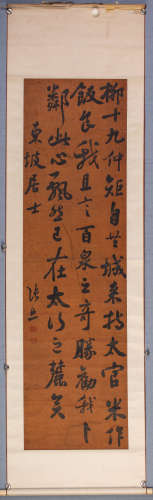 柳十九仲矩自共城来持太官米作
飯食我且言百泉之奇勝勸我卜
鄰此心飄然已在太行之麓矣
東坡居士
張照